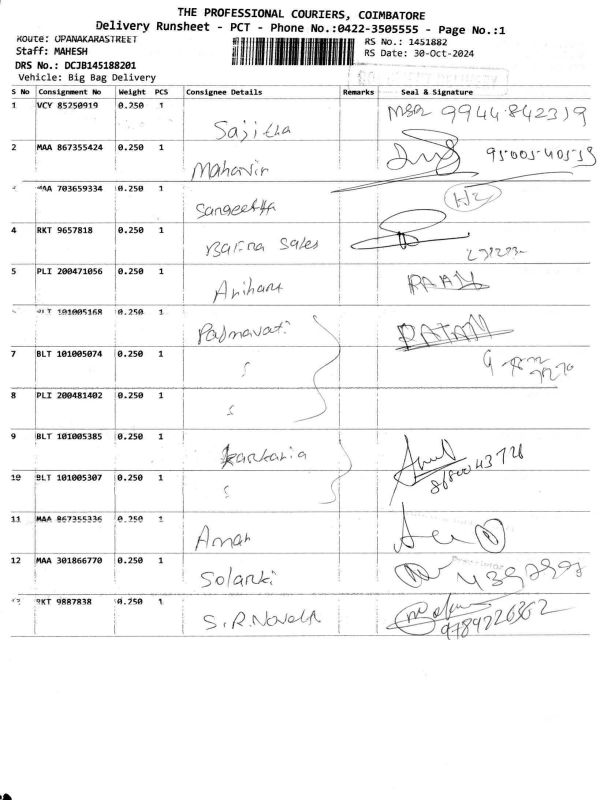 THE PROFESSIONAL COURIERS, COIMBATORE
Delivery Runsheet - PCT - Phone No.:0422-3505555 - Page No.:1
Route: OPANAKARASTREET
RS No.: 1451882
Staff: MAHESH
RS Date: 30-Oct-2024
DRS No.: DCJB145188201
Vehicle: Big Bag Delivery
S No Consignment No Weight PCS Consignee Details Remarks Seal & Signature
1 VCY 85250919 0.250 1 Sajitha 9944842319
2 MAA 867355424 0.250 1 Mahavir 9500540539
MAA 703659334 0.250 1 Sangeetha
4 RKT 9657818 0.250 1 Sales
5 PLI 200471056 0.250 1 Arihant
BLT 101005168 0.250 1 Padmavati RATAN
7 BLT 101005074 0.250 1
8 PLI 200481402 0.250 1
9 BLT 101005385 0.250 1 Kankaria 8680043726
10 BLT 101005307 0.250 1
11 MAA 867355336 0.250 1 Aman
12 MAA 301866770 0.250 1 Solanki
13 RKT 9887838 0.250 1 S.R.Novelt 9789226362